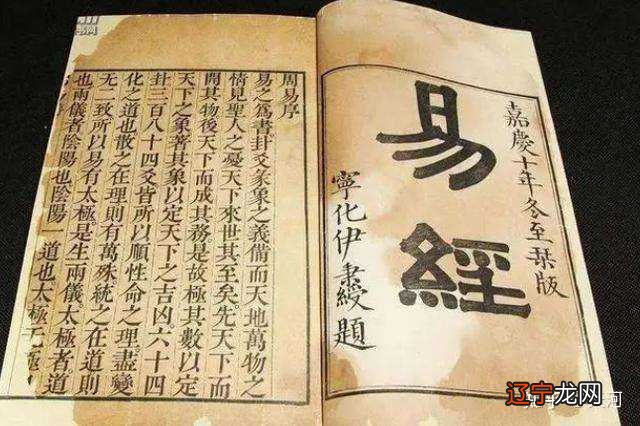 嘉慶十年冬至栞版
易經
寧化伊秉綬題
周易序
易之爲書卦爻彖象之義備而天地萬物之
情見聖人之憂天下來世其至矣先天下而
開其物後天下而成其務是故極其數以定
天下之象著其象以定天下之吉凶六十四
卦三百八十四爻皆所以順性命之理盡變
化之道也散之在理則有萬殊統之在道則
无二致所以易有太極是生兩儀太極者道
也兩儀者陰陽也陰陽一道也太極无極
辽宁龙网
河